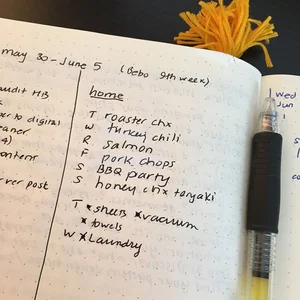 may 30 - June 5 (Bebo 9th week)
audit HB
to digital
content
over post
home
T roaster chx
W turkey chili
R salmon
F pork chops
S BBQ party
S honey chx teryaki
T × sheets × vacuum
× towels
W × Laundry
Wed
Jun